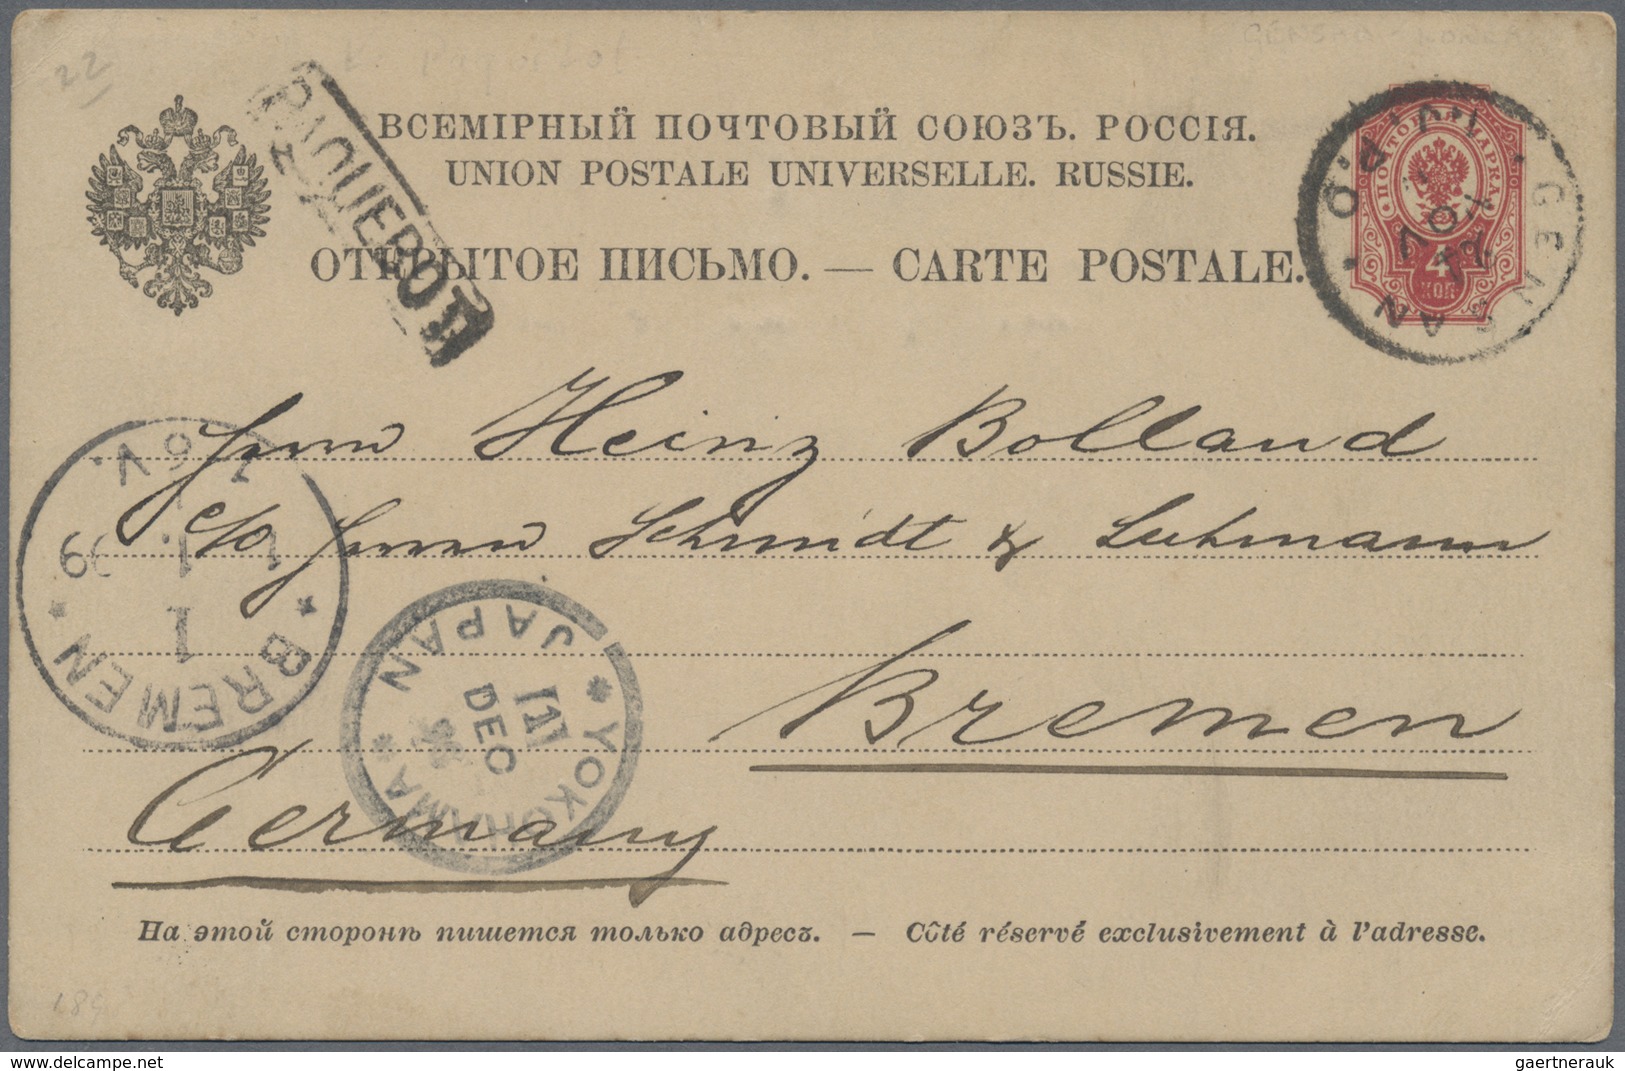 22
GENSAN - KOREA
PAQUEBOT
ВСЕМІРНЫЙ ПОЧТОВЫЙ СОЮЗЪ. РОССІЯ.
UNION POSTALE UNIVERSELLE. RUSSIE.
ОТКРЫТОЕ ПИСЬМО. — CARTE POSTALE.
ПОЧТОВАЯ МАРКА
4
КОП
GENSAN
I.J.P.O.
NOV
Herrn Heinz Bolland
c/o Herren Schmidt & Luhmann
Bremen
Germany
* BREMEN *
1
1. 1. 99
7. 6 V.
* YOKOHAMA *
JAPAN
DEC
98
На этой сторонѣ пишется только адресъ. — Côté réservé exclusivement à l'adresse.
delcampe.net
gaertnerauk